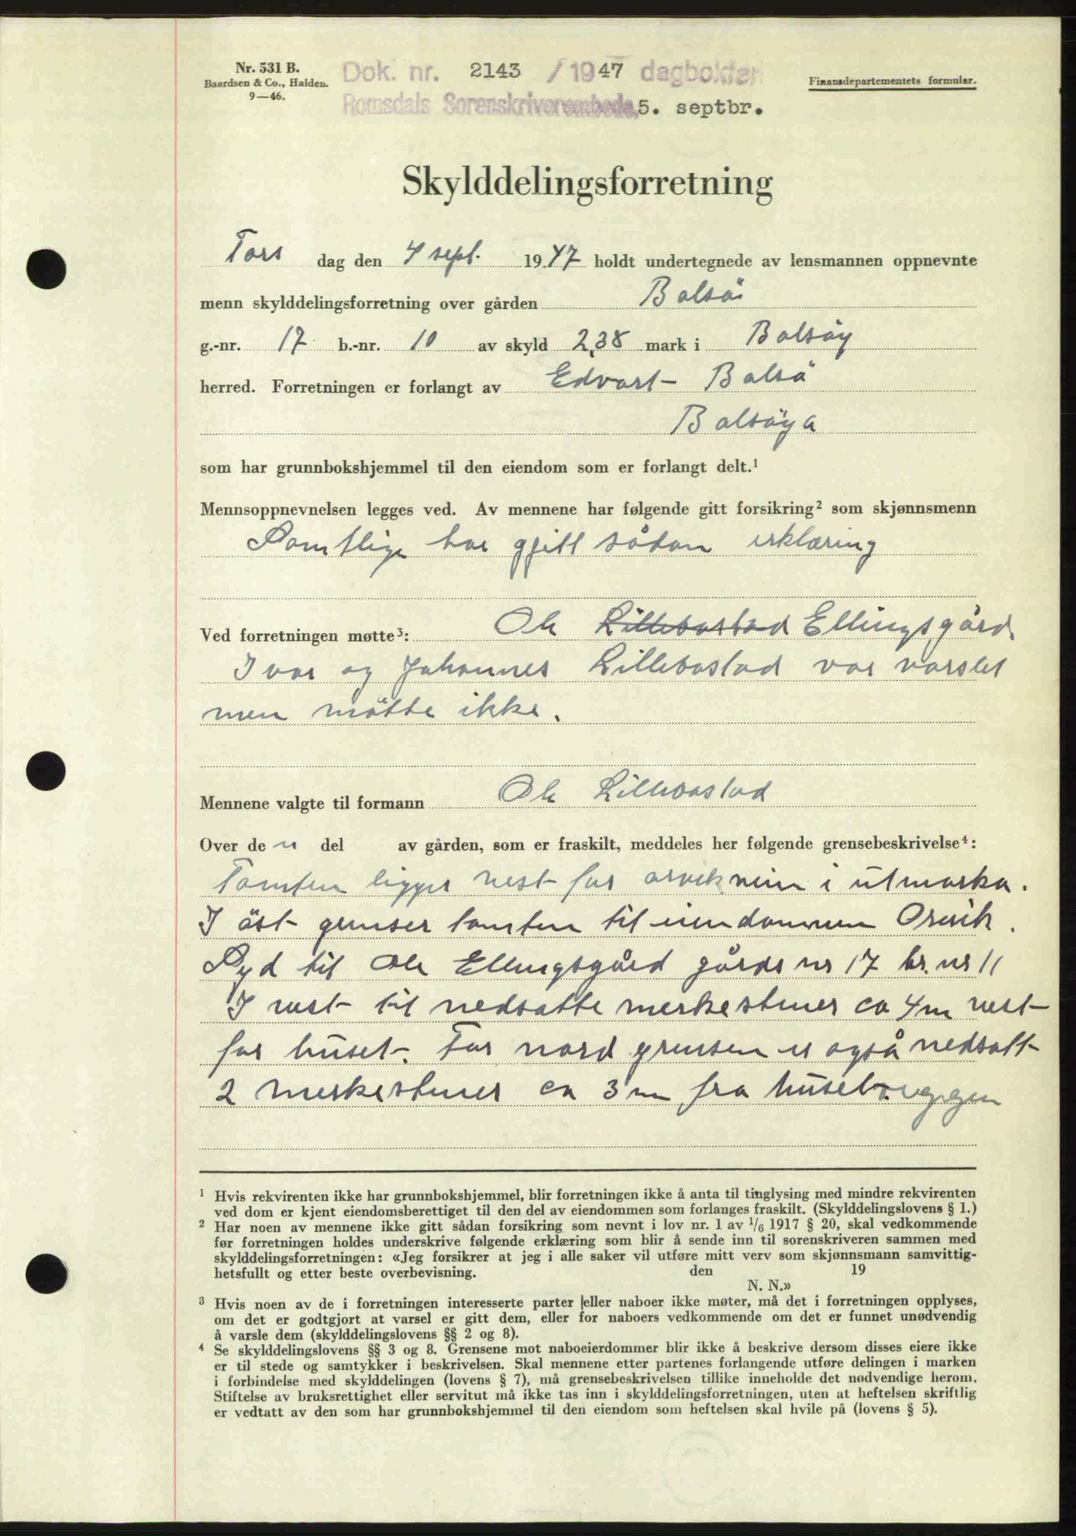 Nr. 531 B.
Baardsen & Co., Halden.
9—46.
Dok. nr. 2143 / 1947 dagboken
Romsdals Sorenskriverembede. 5. septbr.
Finansdepartementets formular.
Skylddelingsforretning
Tors dag den 4 sept. 1947 holdt undertegnede av lensmannen oppnevnte
menn skylddelingsforretning over gården Bolsö
g.-nr. 17 b.-nr. 10 av skyld 2,38 mark i Bolsöy
herred. Forretningen er forlangt av Edvart Bolsö
Bolsöya
som har grunnbokshjemmel til den eiendom som er forlangt delt.¹
Mennsoppnevnelsen legges ved. Av mennene har følgende gitt forsikring² som skjønnsmenn
Samtlige har gjitt sådan erklæring
Ved forretningen møtte³: Ole Lillebostad Ellingsgård.
Ivar og Johannes Lillebostad var varslet
men mötte ikke.
Mennene valgte til formann Ole Lillebostad
Over den del av gården, som er fraskilt, meddeles her følgende grensebeskrivelse⁴:
Tomten ligger vest for orvikveien i utmarka.
I öst grenser tomten til eiendommen Orvik.
Syd til Ole Ellingsgård gårds nr 17 br. nr 11
I vest til nedsatte merkestener ca 4 m vest
for huset. For nord grensen er også nedsatt
2 merkestener ca 3 m fra huset
¹ Hvis rekvirenten ikke har grunnbokshjemmel, blir forretningen ikke å anta til tinglysing med mindre rekvirenten
ved dom er kjent eiendomsberettiget til den del av eiendommen som forlanges fraskilt. (Skylddelingslovens § 1.)
² Har noen av mennene ikke gitt sådan forsikring som nevnt i lov nr. 1 av 1/6 1917 § 20, skal vedkommende
før forretningen holdes underskrive følgende erklæring som blir å sende inn til sorenskriveren sammen med
skylddelingsforretningen: «Jeg forsikrer at jeg i alle saker vil utføre mitt verv som skjønnsmann samvittig-
hetsfullt og etter beste overbevisning. den 19
N. N.»
³ Hvis noen av de i forretningen interesserte parter eller naboer ikke møter, må det i forretningen opplyses,
om det er godtgjort at varsel er gitt dem, eller for naboers vedkommende om det er funnet unødvendig
å varsle dem (skylddelingslovens §§ 2 og 8).
⁴ Se skylddelingslovens §§ 3 og 8. Grensene mot naboeierdommer blir ikke å beskrive dersom disses eiere ikke
er til stede og samtykker i beskrivelsen. Skal mennene etter partenes forlangende utføre delingen i marken
i forbindelse med skylddelingen (lovens § 7), må grensebeskrivelsen tillike inneholde det nødvendige herom.
Stiftelse av bruksrettighet eller servitut må ikke tas inn i skylddelingsforretningen, uten at heftelsen skriftlig
er vedtatt av den som har grunnbokshjemmel til den eiendom som heftelsen skal hvile på (lovens § 5).